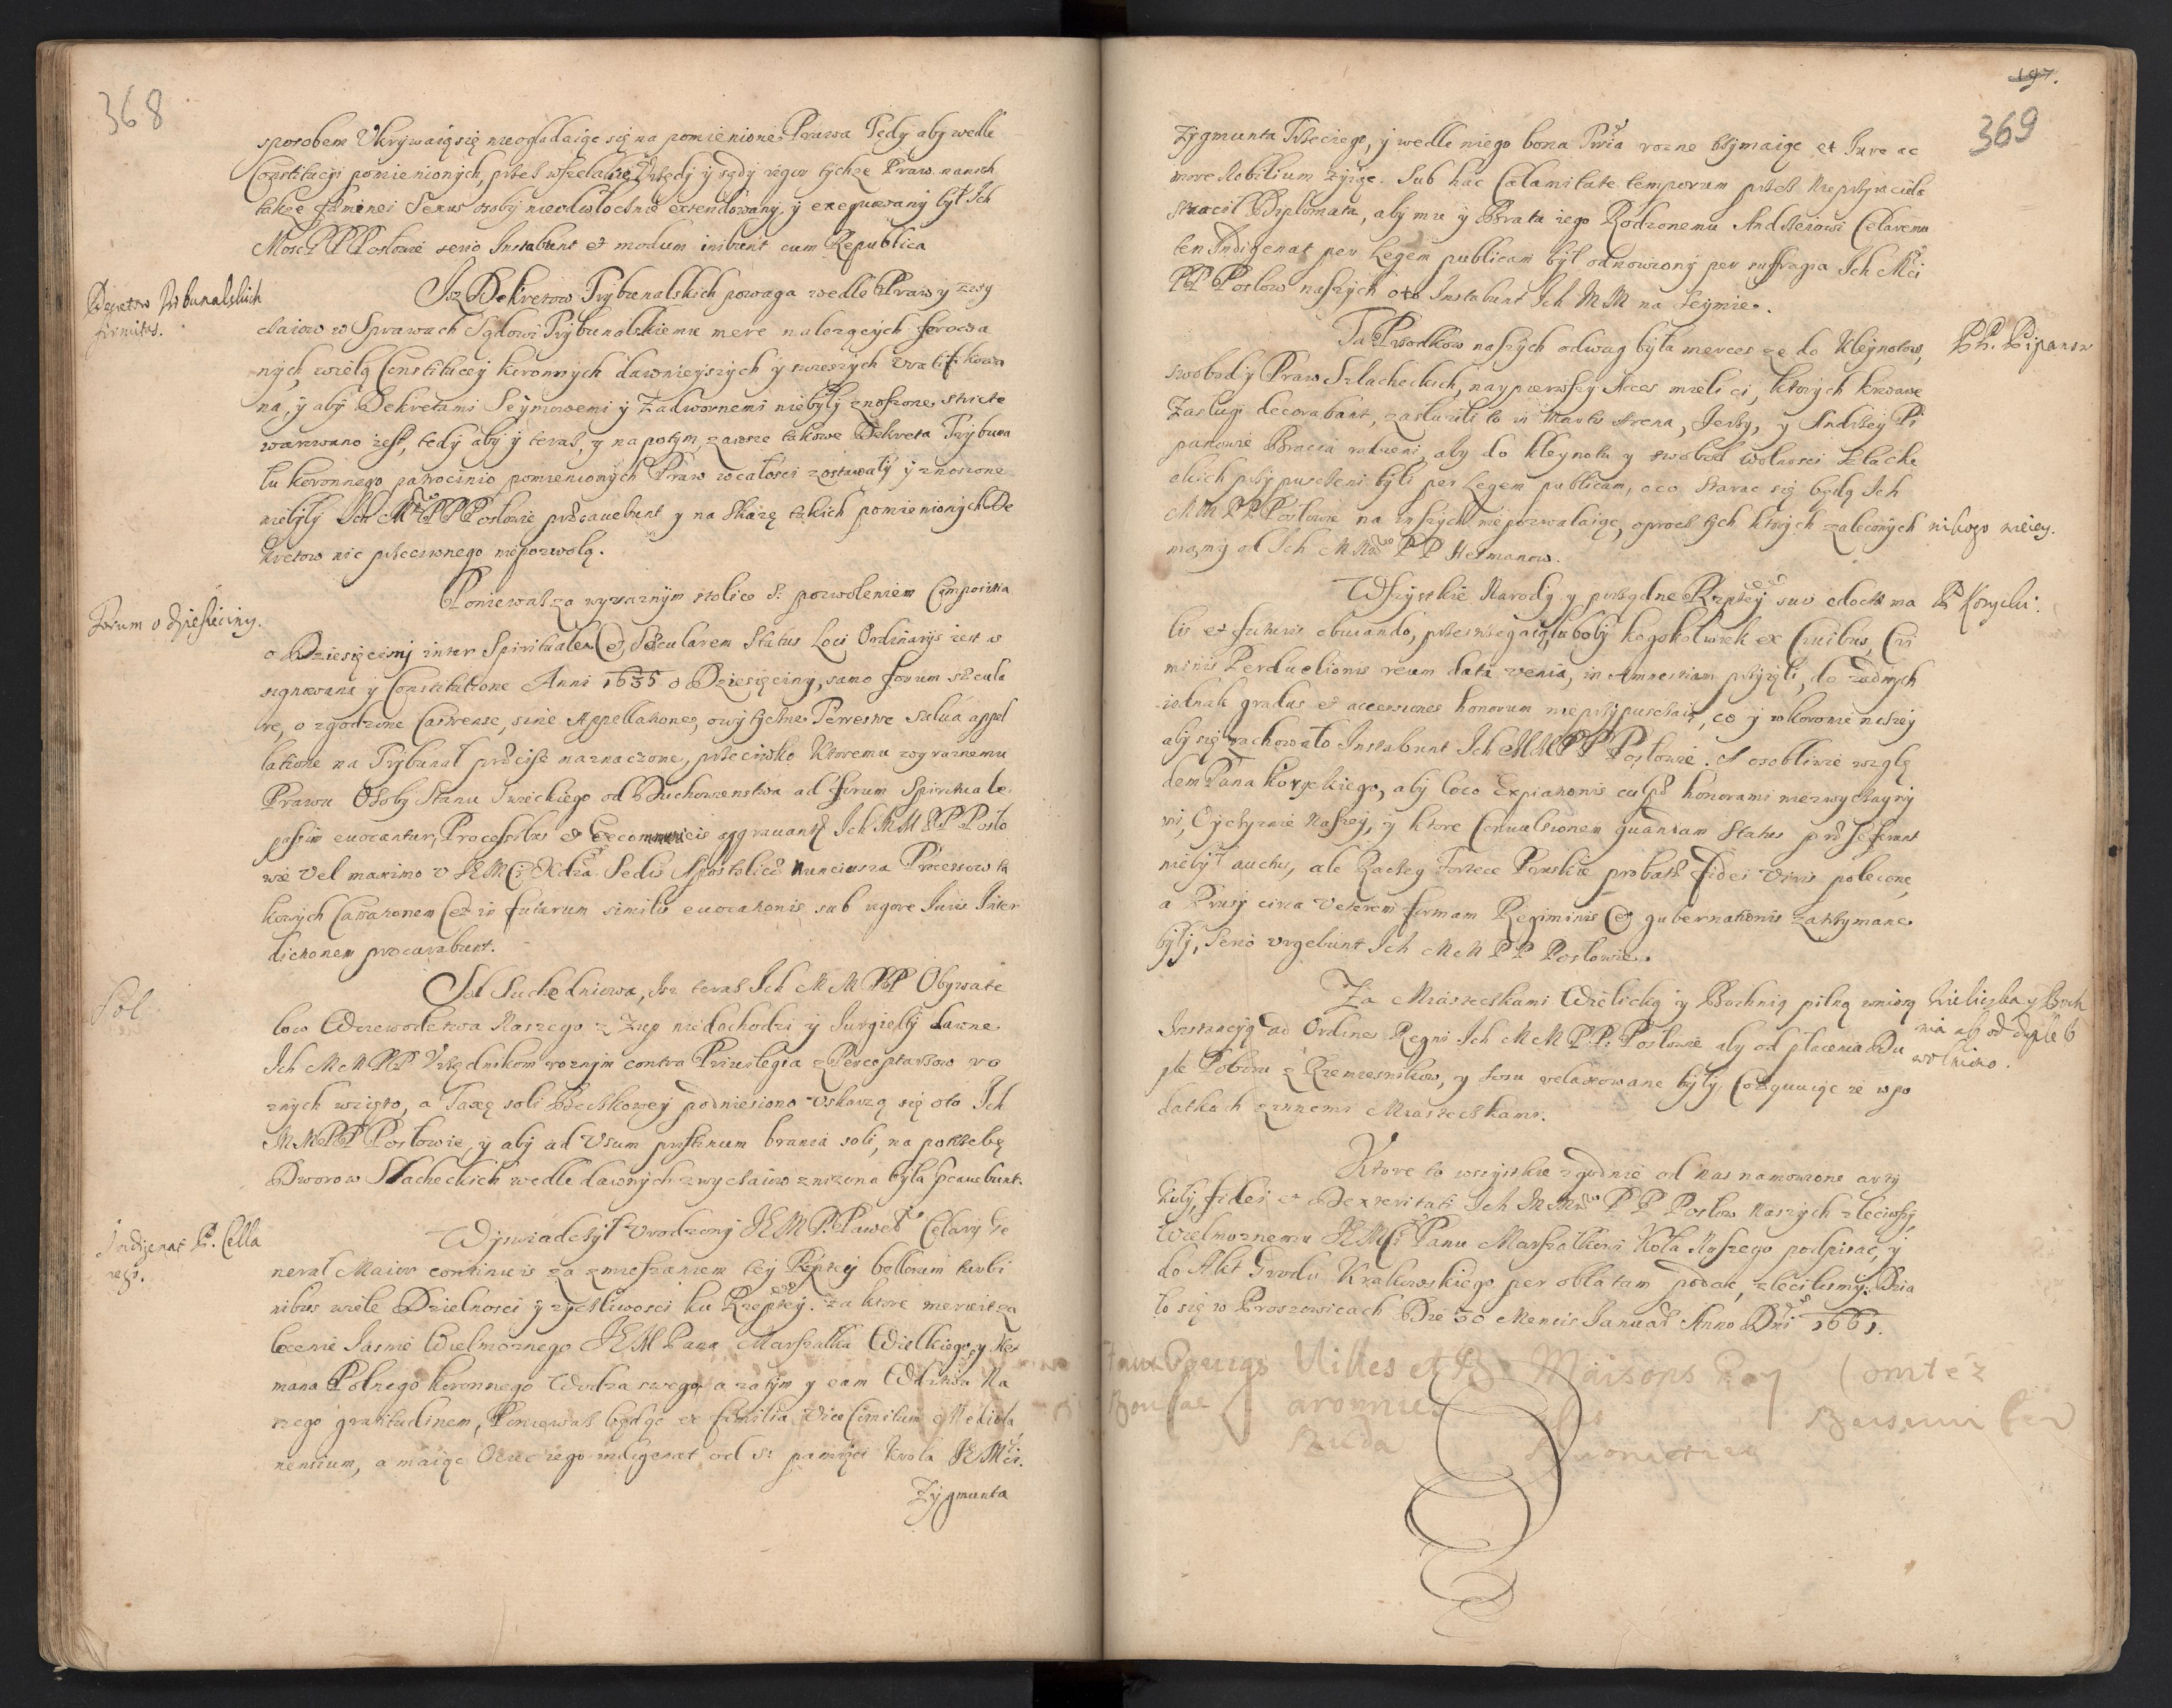 368
sposobem Ukrywaią się nieoglądaiąc się na pomienione Prawa Tedy aby wedle
Constitucyi pomienionych, przez wszelakie Urzędy y sądy rigor tychże Praw. na nich
także fæminei Sexus osoby nieodwłocznie extendowany, y exequowany był Ich
Mość PPP Posłowie serio Instabunt et modum inibunt cum Republica
Decretow Trybunalskich
firmitas.
Isz Dekretow Trybunalskich powaga wedle Praw y zwy
czaiow w Sprawach Sądowi Trybunalskiemu mere należących ferowa
nych, wielą Constitucey koronnych dawnieyszych y swieszych
na, y aby Dekretami Seymowemi y Zadwornemi niebyły znoszone stricte
warowano iest, tedy aby y teraz, y na potym, zawsze takowe Dekreta Trybuna
łu koronnego patrocinio pomienionych Praw w całosci zostawały y znoszone
niebyły Ich M PPP Posłowie præcavebunt y na skazę takich pomienionych De
kretow nic przeciwnego niepozwolą.
Forum o dziesięciny.
Ponieważ za wyraznym stolice S: pozwoleniem Compositia
o Dziesięciny inter Spiritualem et Sæcularem Status Loci Ordinarijs iest w
signowana y Constitutione Anni 1635 o Dziesięciny, samo forum sæcula
re, o zgodzone Castrense, sine Appellatione, o wytyczne Terrestre salua appel
latione na Trybunał præcise naznaczone, przeciwko ktoremu wyraznemu
Prawu Osoby Stanu Swieckiego od Duchowienstwa ad forum Spirituale
passim euocantur, Processibus et aggrauantur Ich MM PP Posło
wie vel maximo v JEMCi Xdza Sedis Apostolicæ Nunciusza Processow ta
kowych Cassationem et in futurum similis euocationis sub rigore Iuris Inter
dictionem procurabunt.
Sol
Sol Suchedniowa, Isz teraz Ich MM PP Obywate
low Woiewodztwa Naszego z Zup niedochodzi y Jurgielty dawne
Ich MM PP Urzędnikom roznym contra Priuilegia z Perceptarzow ro
znych wzięto, a Taxę soli Beczkowey podniesiono Uskarzą się oto Ich
MM PP Posłowie, y aby ad Usum pristinum brania soli, na potrzebę
Dworow Szlacheckich wedle dawnych zwyczaiow znizona była pcauebunt.
Indigenat P. Cella
rego.
Wyswiadczył Urodzony JEM P. Paweł Celary Ge
nerał Maior continuis za zmieszaniem tey Rzptey bellorum turbi
nibus wiele Dzielnosci y zyczliwosci ku Rzeptey. za ktore merient za
lecenie Jasnie Wielmoznego JEM Pana Marszałka Wielkiego y Het
mana Polnego koronnego Wodza swego, a zatym y eam Wdztwa Na
szego gratitudinem, Ponieważ będąc ex familia Vice Comitum Mediola
nensium, a maiąc Ociec iego indigenat od S: pamięci krola JEMCi.
Zygmunta
369
Zygmunta Trzeciego, y wedle niego bona rozne trzymaiąc et Iure ac
more Nobilium zyiąc. Sub hac Calamitate temporum przez Nieprzyiaciela
stracił Diplomata, aby mu y Brata iego Rodzonemu Andrzeiowi Celaremu
ten Indigenat per Legem publicam był odnowiony per suffragia Ich Mci
PP Posłow naszych oto Instabunt Ich MM na Seymie.
PP. Pipanow
Ta Przodkow naszych odwag była merces ze do kleynotow,
swobod y Praw Szlacheckich, naypierwszy Acces mieli ci, ktorych krwawe
Zasługi decorabant, zasłuzili to in Martis Arena, Jerzy, y Andrzey Pi
panowie Bracia rodzeni, aby do kleynotu y swobod wolnosci Szlache
ckich przypuszczeni byli per Legem publicam, o co starac się będą Ich
MM PP Posłowie na inszych niepozwalaiąc, oprocz tych ktorych zaleconych nikogo więcey.
mamy od Ich MM PP Hetmanow.
P. Korycki.
Wszystkie Narody y porządne Rzptey suo edocti ma
lis et futuris obuiando, przestrzegaią kogokolwiek ex Ciuibus, Cri
minis Perduellionis reum data venia, in Amnestiam przyięli, do zadnych
iednak gradus et accensiones honorum nieprzypuszczaią, co y w koronie naszey
aby się zachowało Instabunt Ich MM PP Posłowie. A osobliwie wzglę
dem Pana koryckiego, aby loco Expiationis culpæ honorami niezwyczaynymi
w Oyczyznie Naszey, y ktore Conuulsionem quandam Status præ se ferunt
niebył auctus, ale Raczey Fortece Pruskie probatæ fidei viris polecone,
a Prusy circa Veterem formam Regiminis et gubernationis zatrzymane
były, Serio urgebunt Ich MM PP Posłowie.
Wieliczka y Boch
nia aby od duple
wolniono.
Za Miasteczkami Wieliczką y Bochnią pilną wniosą
Instancyą ad Ordines Regni Ich MM P.P. Posłowie aby od płacenia Du
ple Poboru z Rzemiesnikow, y Łosu relaxowane były, Coæquuiąc ie w po
datkach z innemi Miasteczkami.
Ktore to wszystkie zgodnie od nas namowione arty
kuły, fidei et Dexteritati Ich MM PP Posłow Naszych zleciwszy,
Wielmoznemu JEMCi Panu Marszałkowi Koła Naszego podpisac, y
do Akt Grodu Krakowskiego per oblatam podac, zlecilismy. Dzia
ło się w Proszowicach Die 30 Mensis Januarij Anno Dni 1661.
Villes et Maisons Comtéz